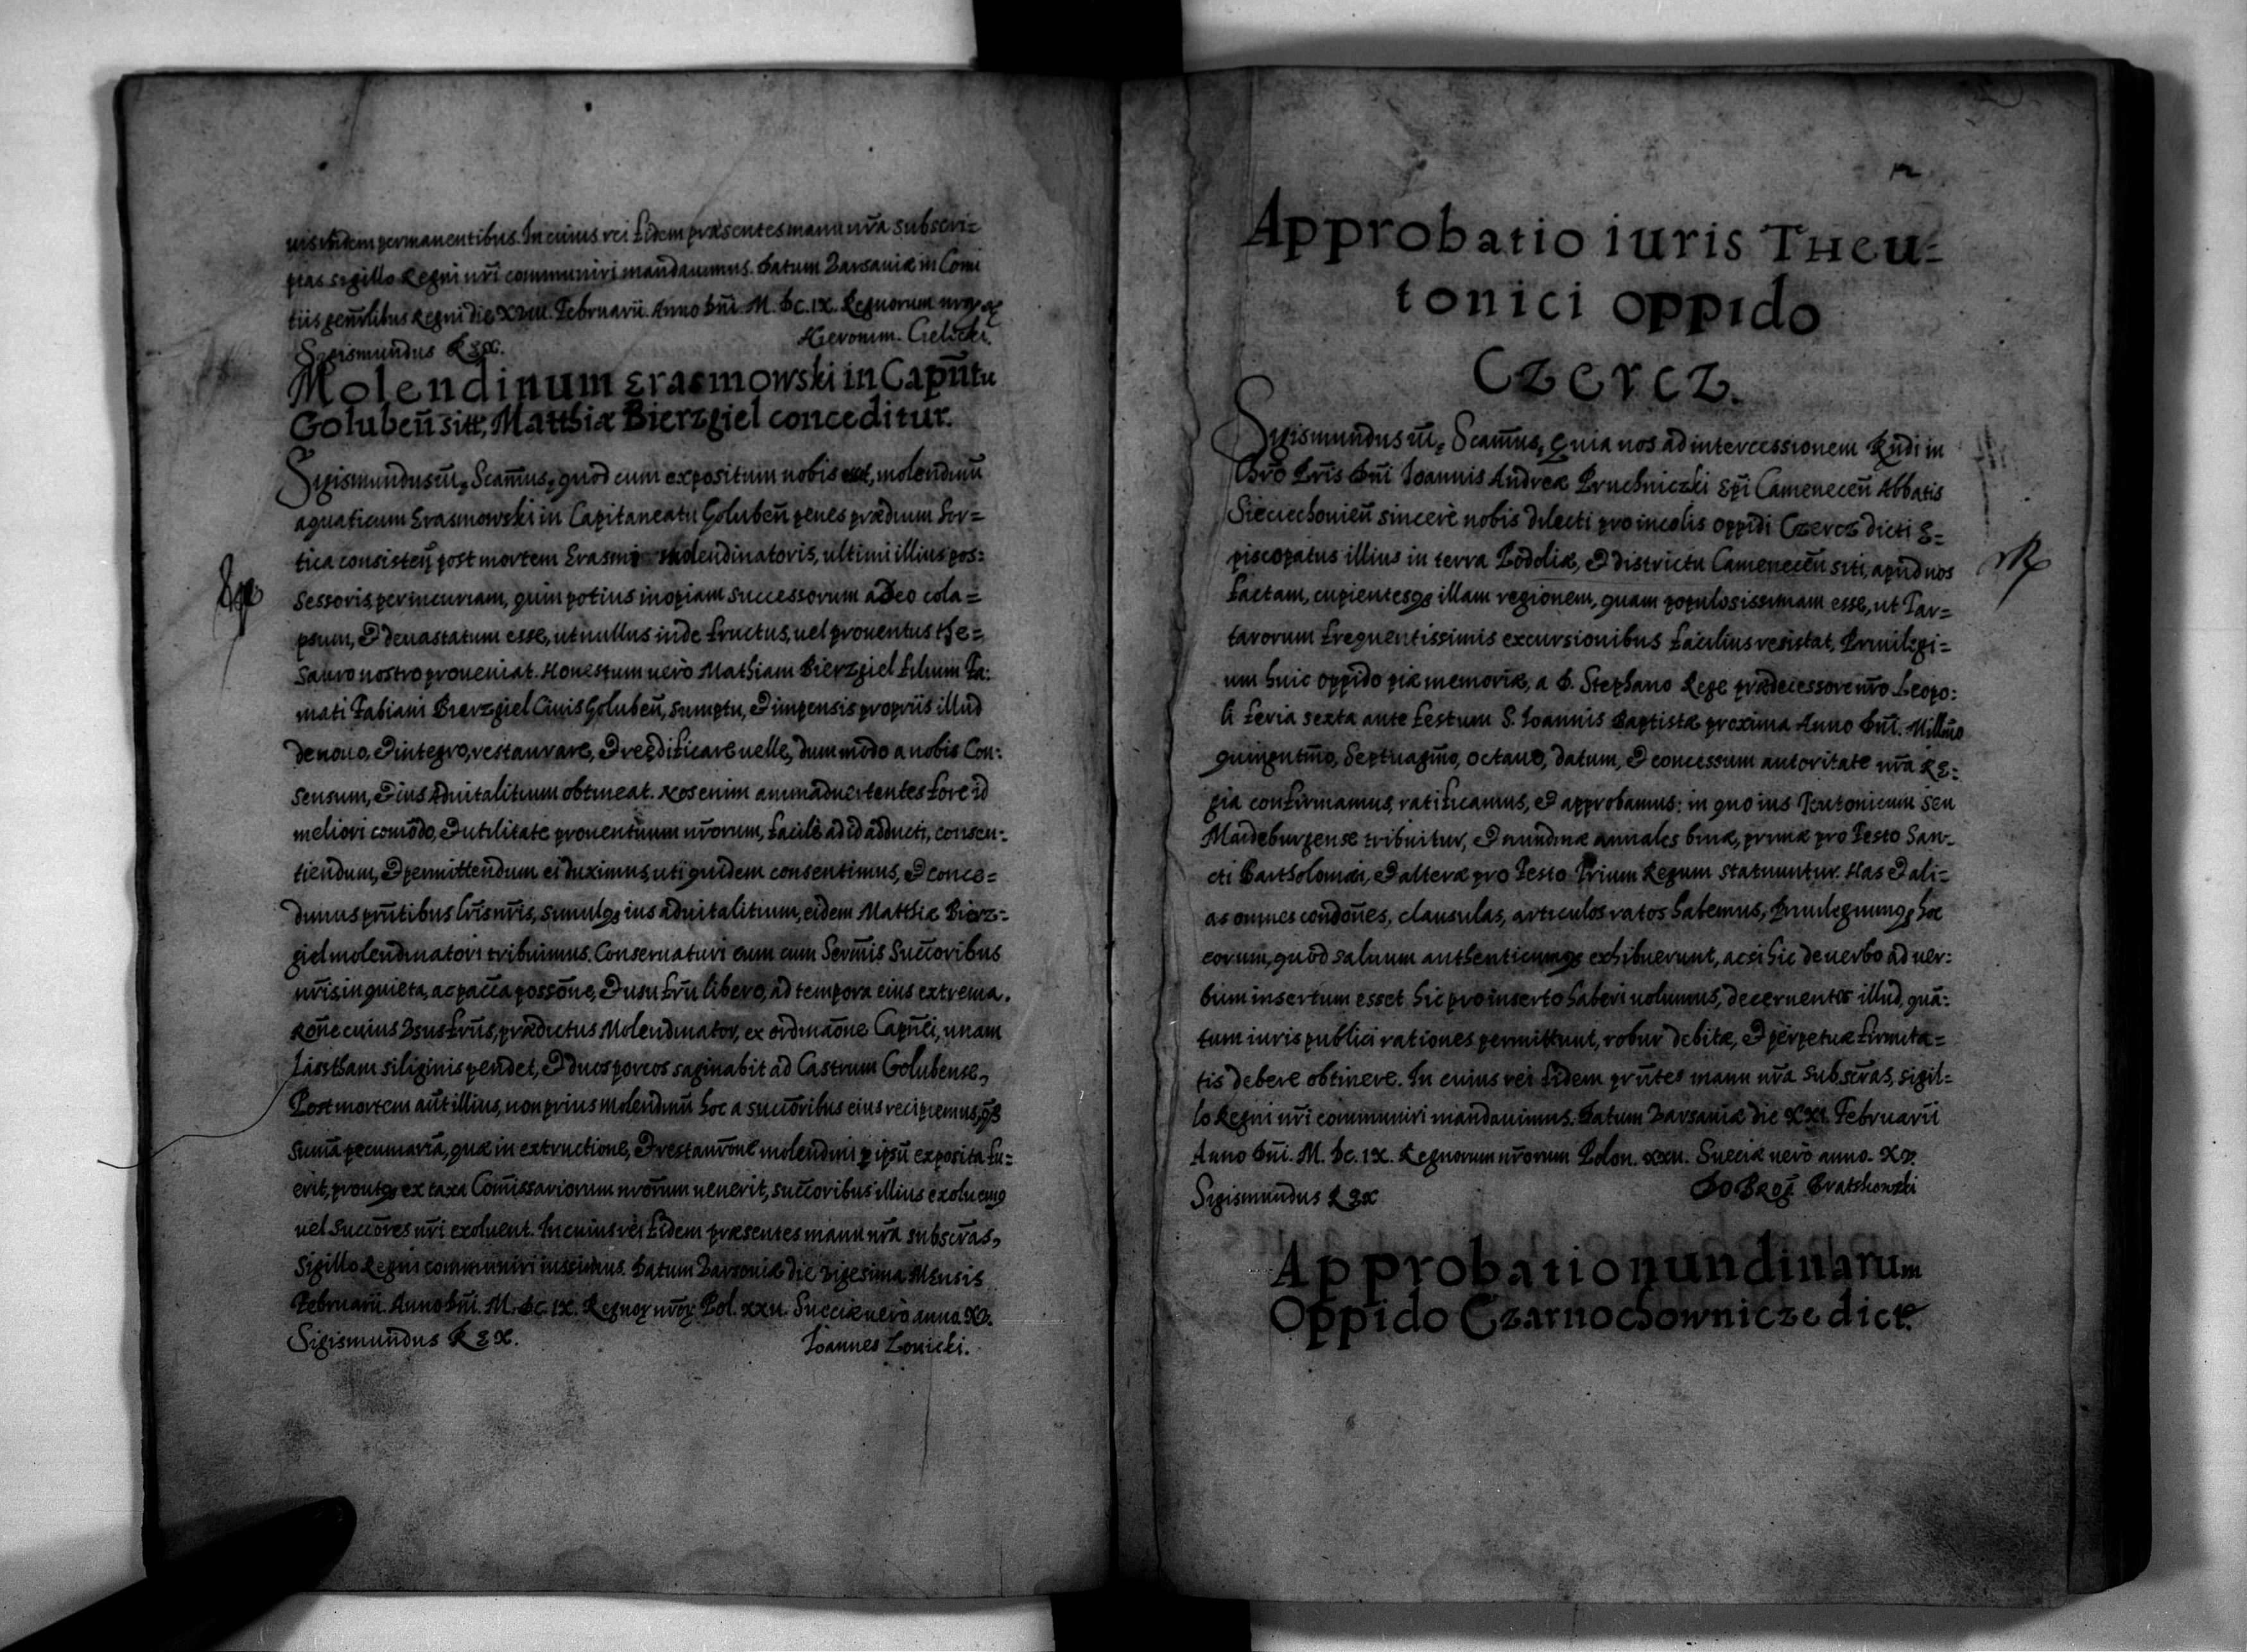 uis ibidem permanentibus. In cuius rei fidem præsentes manu nr̃a subscri=
ptas sigillo Regni nr̃i communiri mandauimus. Datum Varsauiæ in Comi
tiis gen̄rlibus Regni die XVIII. Februarii. Anno Dn̄i M. DC. IX. Regnorum
Sigismundus REX. Hieronim. Cielicki.
Molendinum Erasmowski in Capn̄tu
Goluben̄ sitt, Matthiæ Bierzgiel conceditur.
Sigismundus III, Scam̄us, quod cum expositum nobis esset, molendinū
aquaticum Erasmowski in Capitaneatu Goluben̄ penes prædium Sor=
tica consisten̄ post mortem Erasmi molendinatoris, ultimi illius pos=
sessoris, per incuriam, quin potius inopiam successorum adeo cola=
psum, & deuastatum esse, ut nullus inde fructus, uel prouentus the=
sauro nostro proueniat. Honestum uerò Mathiam Bierzgiel filium Fa:
mati Fabiani Bierzgiel Ciuis Goluben̄, sumptu, & impensis propriis illud
de nouo, & integro, restaurare, & reedificare uelle, dum modo a nobis Con:
sensum, & ius aduitalitium obtineat. Nos enim animaduertentes fore id
meliori com̄odo, & utilitate prouentuum nr̄orum, facilè ad id adducti, consen:
tiendum, & permittendum ei duximus, uti quidem consentimus, & conce=
dimus pn̄tibus lr̄is nr̄is, simulq3 ius aduitalitium, eidem Matthiæ Bierz=
giel molendinatori tribuimus. Conseruaturi eum cum Serm̄is Succ̄oribus
nr̄is, in quieta, ac pacc̄a possōne, & usufrū libero, ad tempora eius extrema.
Rōne cuius Vsusfrūs, prædictus Molendinator, ex ordinaōne Capn̄ei, unam
Lasstham siliginis pendet, & duos porcos saginabit ad Castrum Golubense,
Post mortem aūt illius, non prius molendinū hoc a succ̄oribus eius recipiemus,
sum̄ā pecuniariā, quæ in extructione, & restaurōne molendini p ipsū exposita fu=
erit, proutq3 ex taxa Com̄issariorum nr̄orum uenerit, succ̄oribus illius exoluemq
uel succ̄ores nr̄i exoluent. In cuius rei fidem præsentes manu nr̄a subscr̄as,
sigillo Regni communiri iussimus. Datum Varsouiæ die vigesima Mensis
Februarii. Anno Dn̄i. M. DC. IX. Regnoꝝ nr̄oꝝ Pol. XXII. Sueciæ uerò anno XV.
Sigismundus REX. Ioannes Lonicki.
Approbatio iuris Theu=
tonici oppido
Czercz.
Sigismundus III, Scam̄us, Quia nos ad intercessionem Rn̄di in
Chr̄o Pr̄is Dn̄i Ioannis Andreæ Pruchniczki Ep̄i Camenecen̄ Abbatis
Sieciechouien̄ sincerè nobis dilecti pro incolis oppidi Czercz dicti E=
piscopatus illius in terra Podoliæ, & districtu Camenecen̄ siti, apud nos
factam, cupientesq3 illam regionem, quam populosissimam esse, ut Tar=
tarorum frequentissimis excursionibus facilius resistat, Priuilegi=
um huic oppido piæ memoriæ, a D. Stephano Rege prædecessore nr̄o Leopo:
li feria sexta ante festum S. Ioannis Baptistæ proxima Anno Dn̄i. Millm̄o
quingentm̄o, Septuagm̄o, octauo, datum, & concessum autoritate nr̄a RE=
gia confirmamus, ratificamus, & approbamus: in quo ius Teutonicum seu
Maideburgense tribuitur, & nundinæ annales binæ, primæ pro Festo San=
cti Bartholomæi, & alteræ pro Festo Trium Regum statuuntur. Has & ali=
as omnes condōnes, clausulas, articulos ratos habemus, Priuilegiumq3 hoc
eorum, quòd saluum authenticumq3 exhibuerunt, acsi hic de uerbo ad uer:
bum insertum esset hic pro inserto haberi uolumus, decernentes illud, quā=
tum iuris publici rationes permittunt, robur debitæ, & perpetuæ firmita=
tis debere obtinere. In cuius rei fidem pn̄tes manu nr̄a subscr̄as, sigil=
lo Regni nr̄i communiri mandauimus. Datum Varsauiæ die XXI. Februarii
Anno Dn̄i. M. DC. IX. Regnorum nr̄orum Polon. XXII. Sueciæ uerò anno. XV.
Sigismundus REX Bratkowski
Approbatio nundinarum
Oppido Czarnochownicze dict.